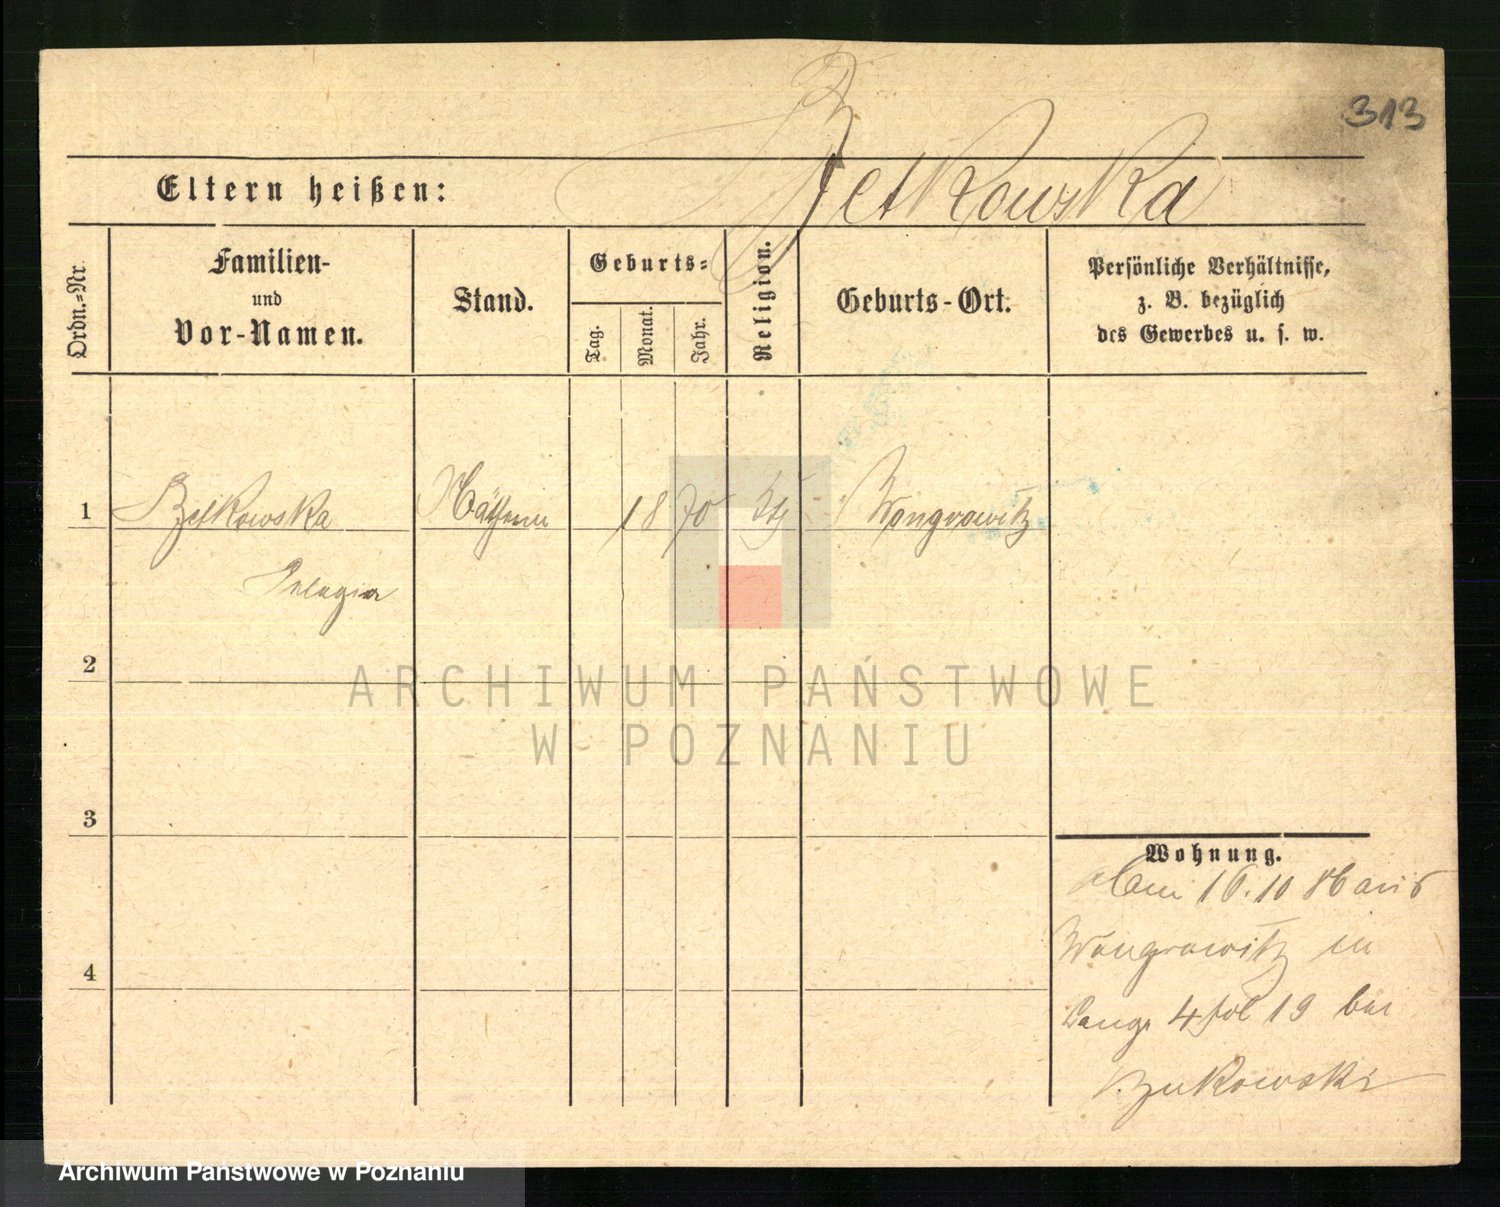 313
Zetkowska
Eltern heißen:
Ordn.=Nr.
Familien-
und
Vor-Namen.
Stand.
Geburts=
Tag.
Monat.
Jahr.
Religion.
Geburts-Ort.
Persönliche Verhältnisse,
z. B. bezüglich
des Gewerbes u. s. w.
1
Zetkowska
Näthrin
1870
Kth
Wongrowitz
Pelagia
2
ARCHIWUM PAŃSTWOWE
W POZNANIU
3
Wohnung.
16.10 86 aus
Wongrowitz in
4
Lange 4 fol 19 bei
Zukowski
Archiwum Państwowe w Poznaniu